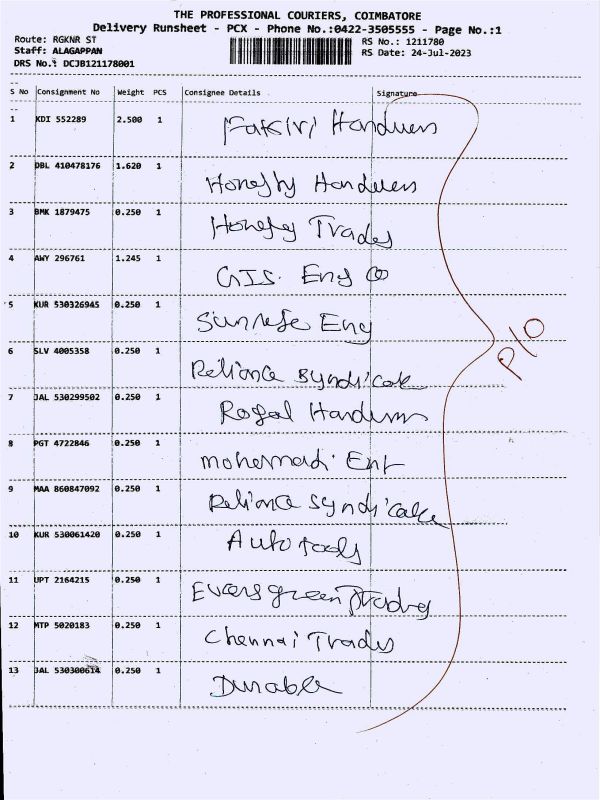 THE PROFESSIONAL COURIERS, COIMBATORE
Delivery Runsheet - PCX - Phone No.:0422-3505555 - Page No.:1
Route: RGKNR ST RS No.: 1211780
Staff: ALAGAPPAN RS Date: 24-Jul-2023
DRS No.: DCJB121178001
S No Consignment No Weight PCS Consignee Details Signature
1 KDI 552289 2.500 1
2 DBL 410478176 1.620 1 Honesty
3 BMK 1879475 0.250 1 Honesty Trades
4 AWY 296761 1.245 1 GIS. Eng Co
5 KUR 530326945 0.250 1 Eng
P10
6 SLV 4005358 0.250 1 Reliance Syndicate
7 JAL 530299502 0.250 1 Royal
8 PGT 4722846 0.250 1 Ent
9 MAA 860847092 0.250 1 Reliance Syndicate
10 KUR 530061420 0.250 1 Auto tools
11 UPT 2164215 0.250 1
12 MTP 5020183 0.250 1 Chennai Trades
13 JAL 530300614 0.250 1 Durable